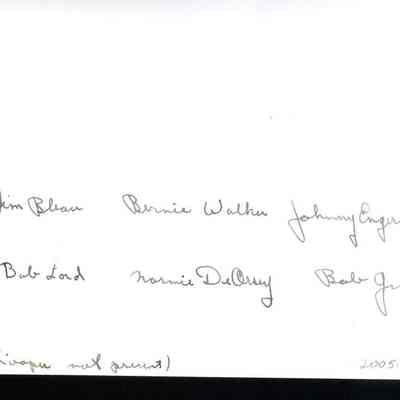 Jim Bleau Bernie Walker Johnny Enger
Bob Lord Normie DeOrsey Bob Gr
not present) 2005.